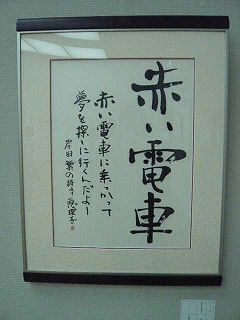 赤い電車
赤い電車に乗っかって
夢を探しに行くんだよー
岸田繁の詩を 恵理子